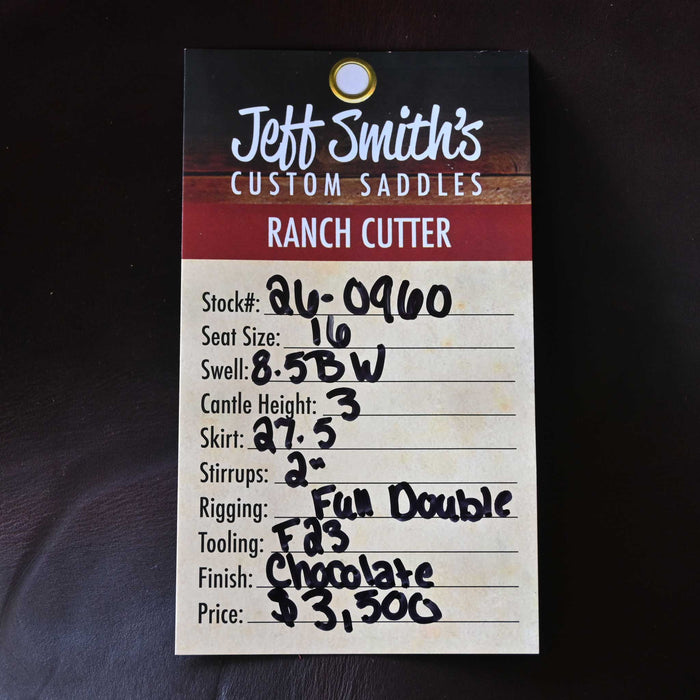 Jeff Smith's
CUSTOM SADDLES
RANCH CUTTER
Stock#: 26-0960
Seat Size: 16
Swell: 8.5BW
Cantle Height: 3
Skirt: 27.5
Stirrups: 2"
Rigging: Full Double
Tooling: F23
Finish: Chocolate
Price: $3,500